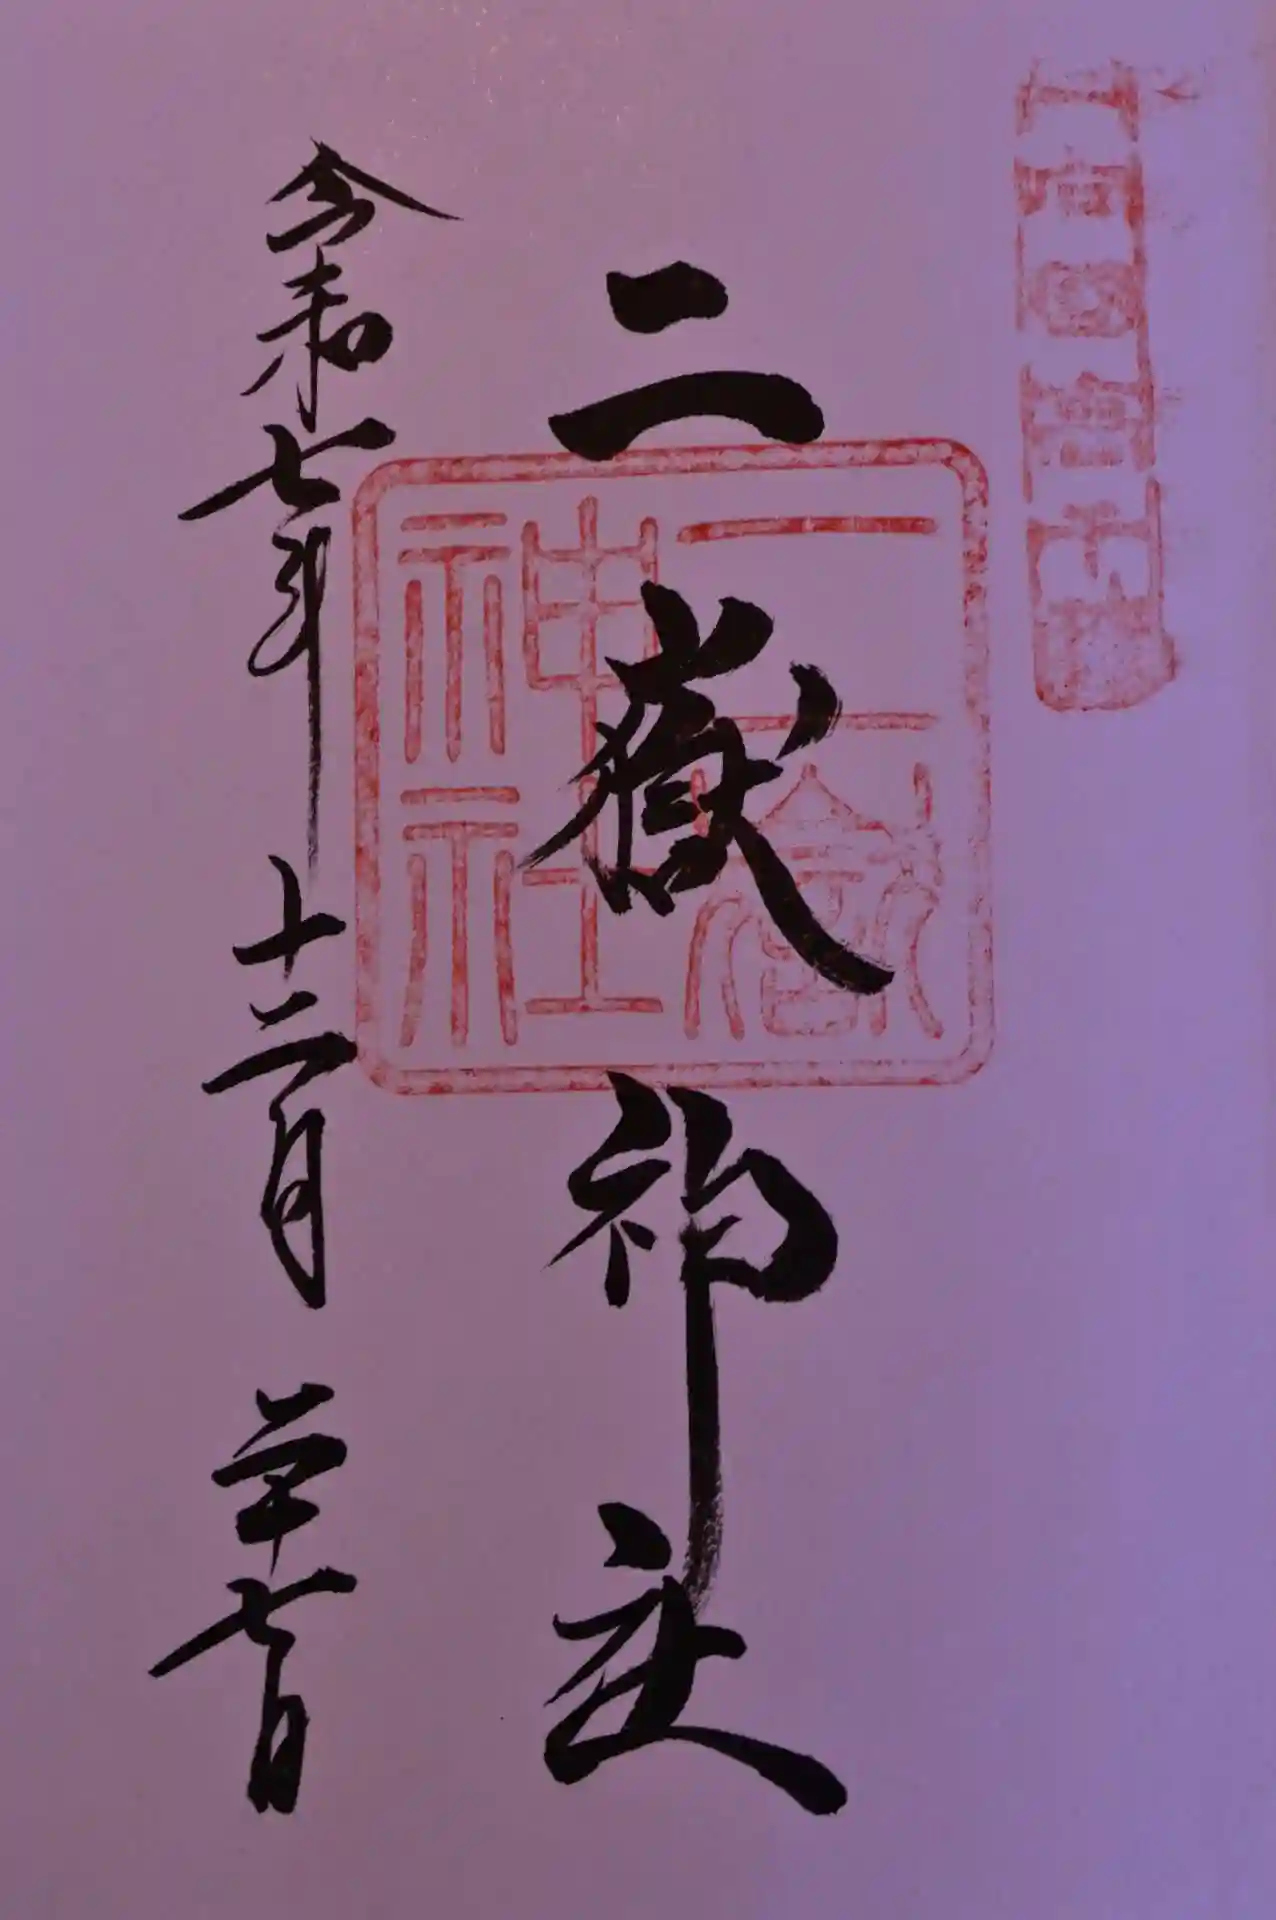 二嶽神社
二嶽
神社
令和七年十二月 七日